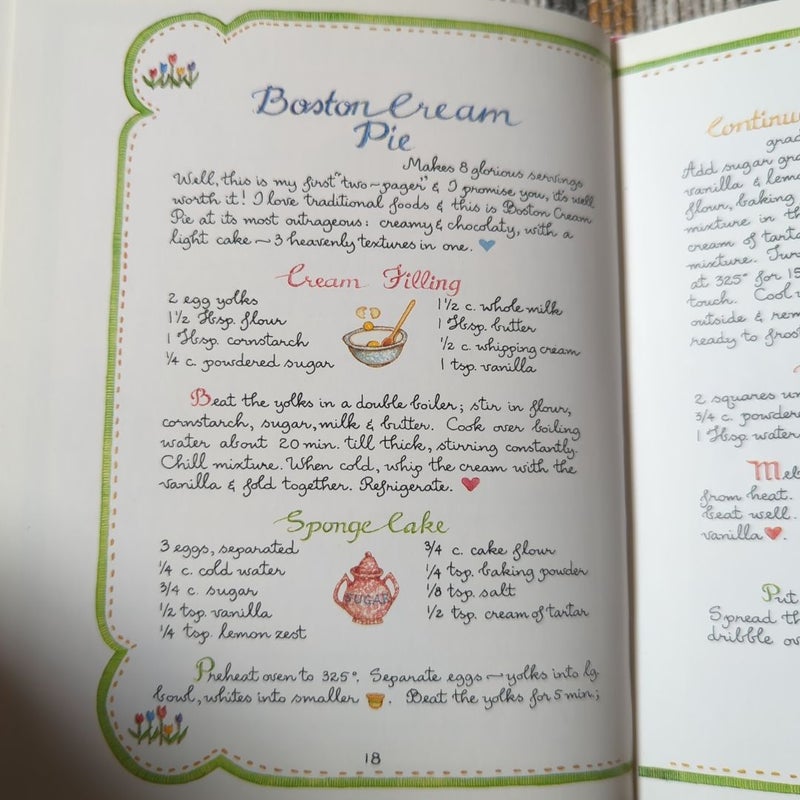 Boston Cream
Pie
Makes 8 glorious servings
Well, this is my first "two~pager" & I promise you, it's well
worth it! I love traditional foods & this is Boston Cream
Pie at its most outrageous: creamy & chocolaty, with a
light cake ~ 3 heavenly textures in one.
Cream Filling
2 egg yolks
1 1/2 Tbsp. flour
1 Tbsp. cornstarch
1/4 c. powdered sugar
1 1/2 c. whole milk
1 Tbsp. butter
1/2 c. whipping cream
1 tsp. vanilla
Beat the yolks in a double boiler; stir in flour,
cornstarch, sugar, milk & butter. Cook over boiling
water about 20 min. till thick, stirring constantly.
Chill mixture. When cold, whip the cream with the
vanilla & fold together. Refrigerate.
Sponge Cake
3 eggs, separated
1/4 c. cold water
3/4 c. sugar
1/2 tsp. vanilla
1/4 tsp. lemon zest
SUGAR
3/4 c. cake flour
1/4 tsp. baking powder
1/8 tsp. salt
1/2 tsp. cream of tartar
Preheat oven to 325°. Separate eggs ~ yolks into lg.
bowl, whites into smaller . Beat the yolks for 5 min.;
18
Add sugar
vanilla &
flour, baking
mixture in
cream of
mixture.
at 325° for
touch. Cool
outside &
ready to
2 squares
3/4 c.
1 Tbsp. water
from heat.
beat well.
vanilla
Put
Spread
dribble